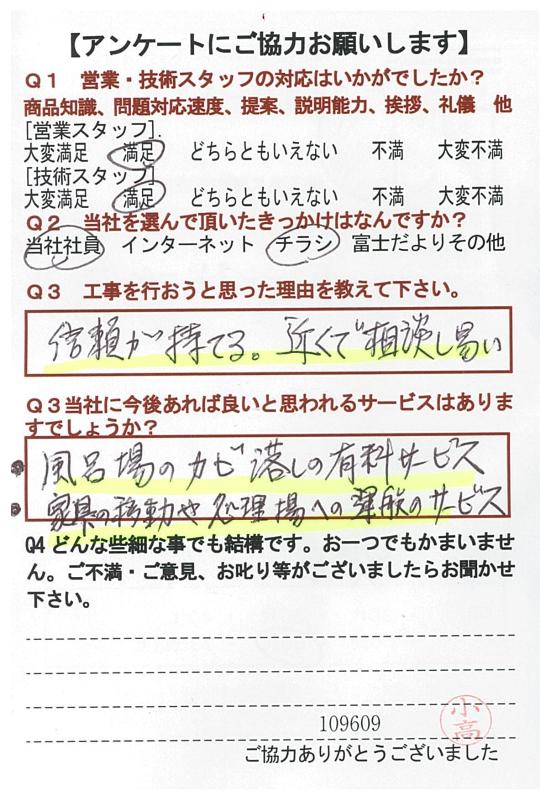 【アンケートにご協力お願いします】
Q1 営業・技術スタッフの対応はいかがでしたか?
商品知識、問題対応速度、提案、説明能力、挨拶、礼儀 他
[営業スタッフ].
大変満足 満足 どちらともいえない 不満 大変不満
[技術スタッフ]
大変満足 満足 どちらともいえない 不満 大変不満
Q2 当社を選んで頂いたきっかけはなんですか?
当社社員 インターネット チラシ 富士だよりその他
Q3 工事を行おうと思った理由を教えて下さい。
信頼が持てる。近くで相談し易い
Q3当社に今後あれば良いと思われるサービスはありま
すでしょうか?
風呂場のカビ落しの有料サービス
家具の移動や処理場への運般のサービス
Q4 どんな些細な事でも結構です。お一つでもかまいませ
ん。ご不満・ご意見、お叱り等がございましたらお聞かせ
下さい。
109609
小高
ご協力ありがとうございました